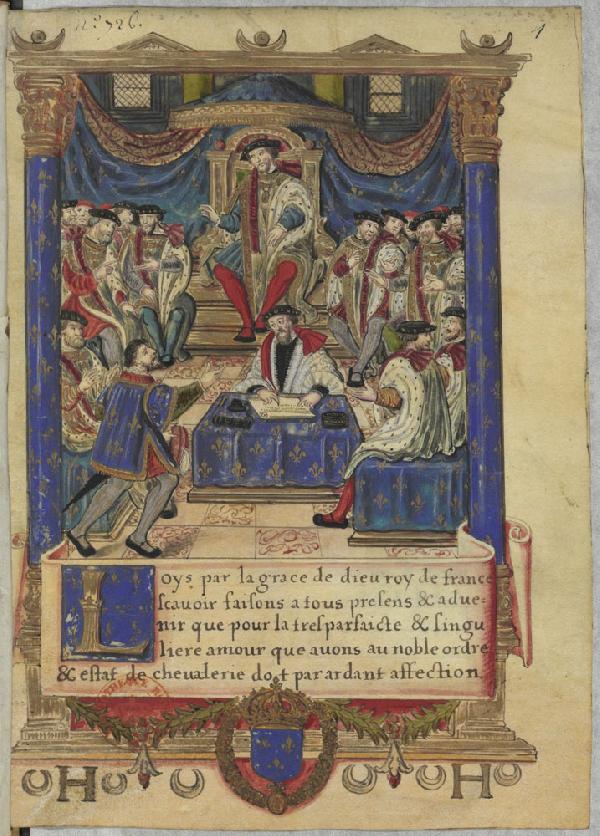 nº. 726.
1
Loys par la grace de dieu roy de france
scavoir faisons a tous presens & adue-
nir que pour la tresparfaicte & singu
liere amour que auons au noble ordre
& estat de cheualerie dot par ardant affection
H H